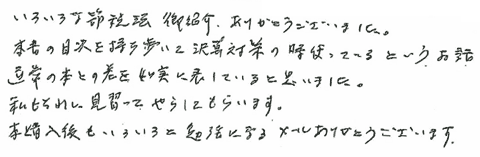 いろいろな節税法 御紹介、ありがとうございました。
本書の目次を持ち歩いて決算対策の時使っている というお話
通常の本との差を如実に表していると思いました。
私もそれに見習って やらしてもらいます。
本購入後もいろいろと勉強になる メールありがとうございます。